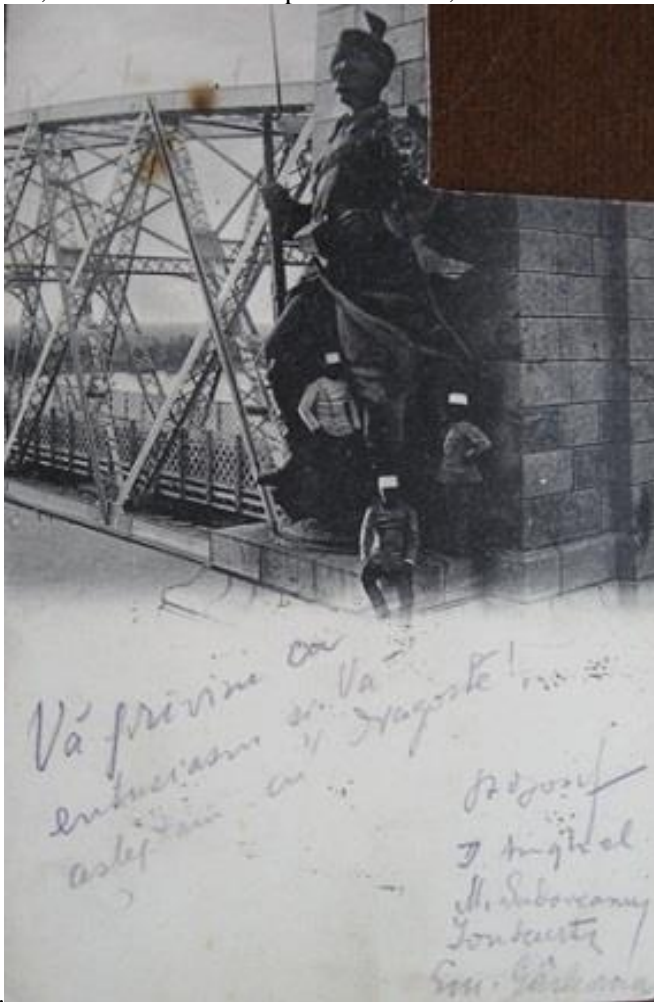 Vă privim cu
entuziasm și Vă
așteptăm cu dragoste!
D Anghel
M. Sadoveanu
Em. Gârleanu